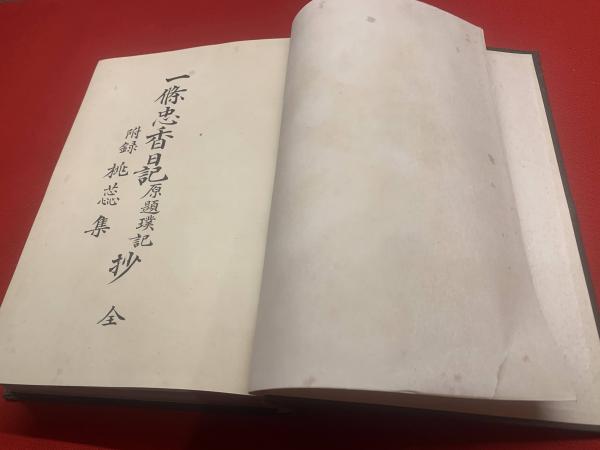 一條忠香日記抄
原題璞記
附録桃蕊集
全